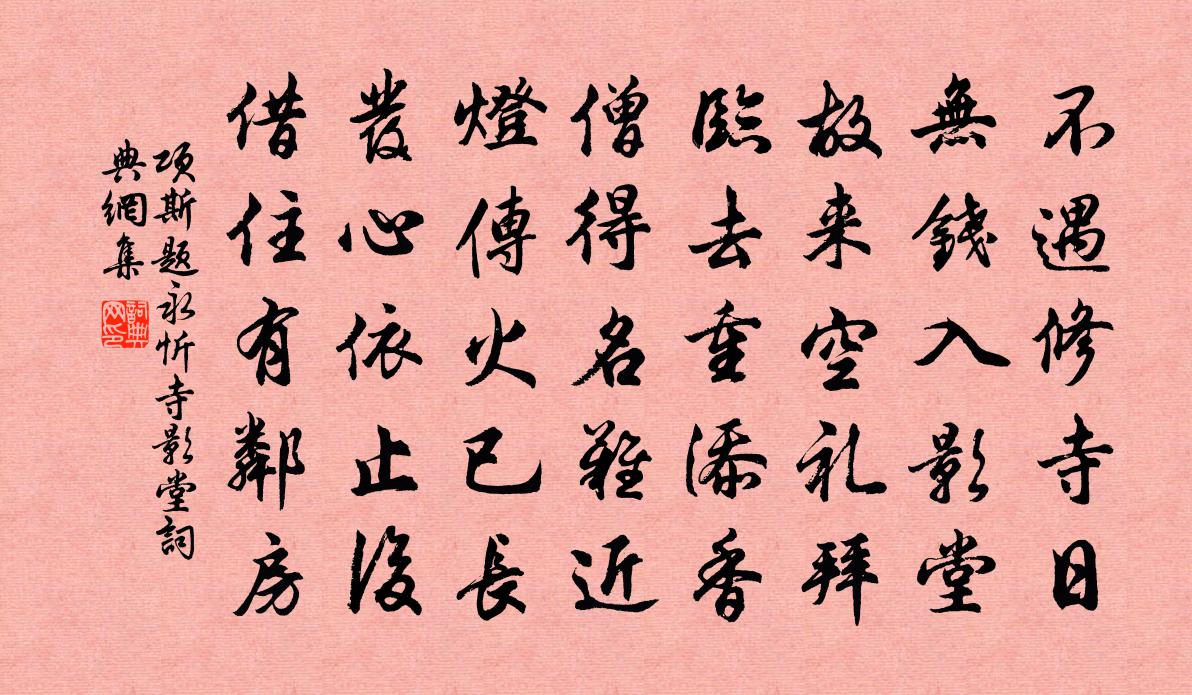 不遇修寺日
無錢入影堂
故来空礼拜
臨去重添香
僧得名難近
燈傳火已長
發心依止後
借住有鄰房
項斯題永忻寺影堂詞
典網集
詞典
网印